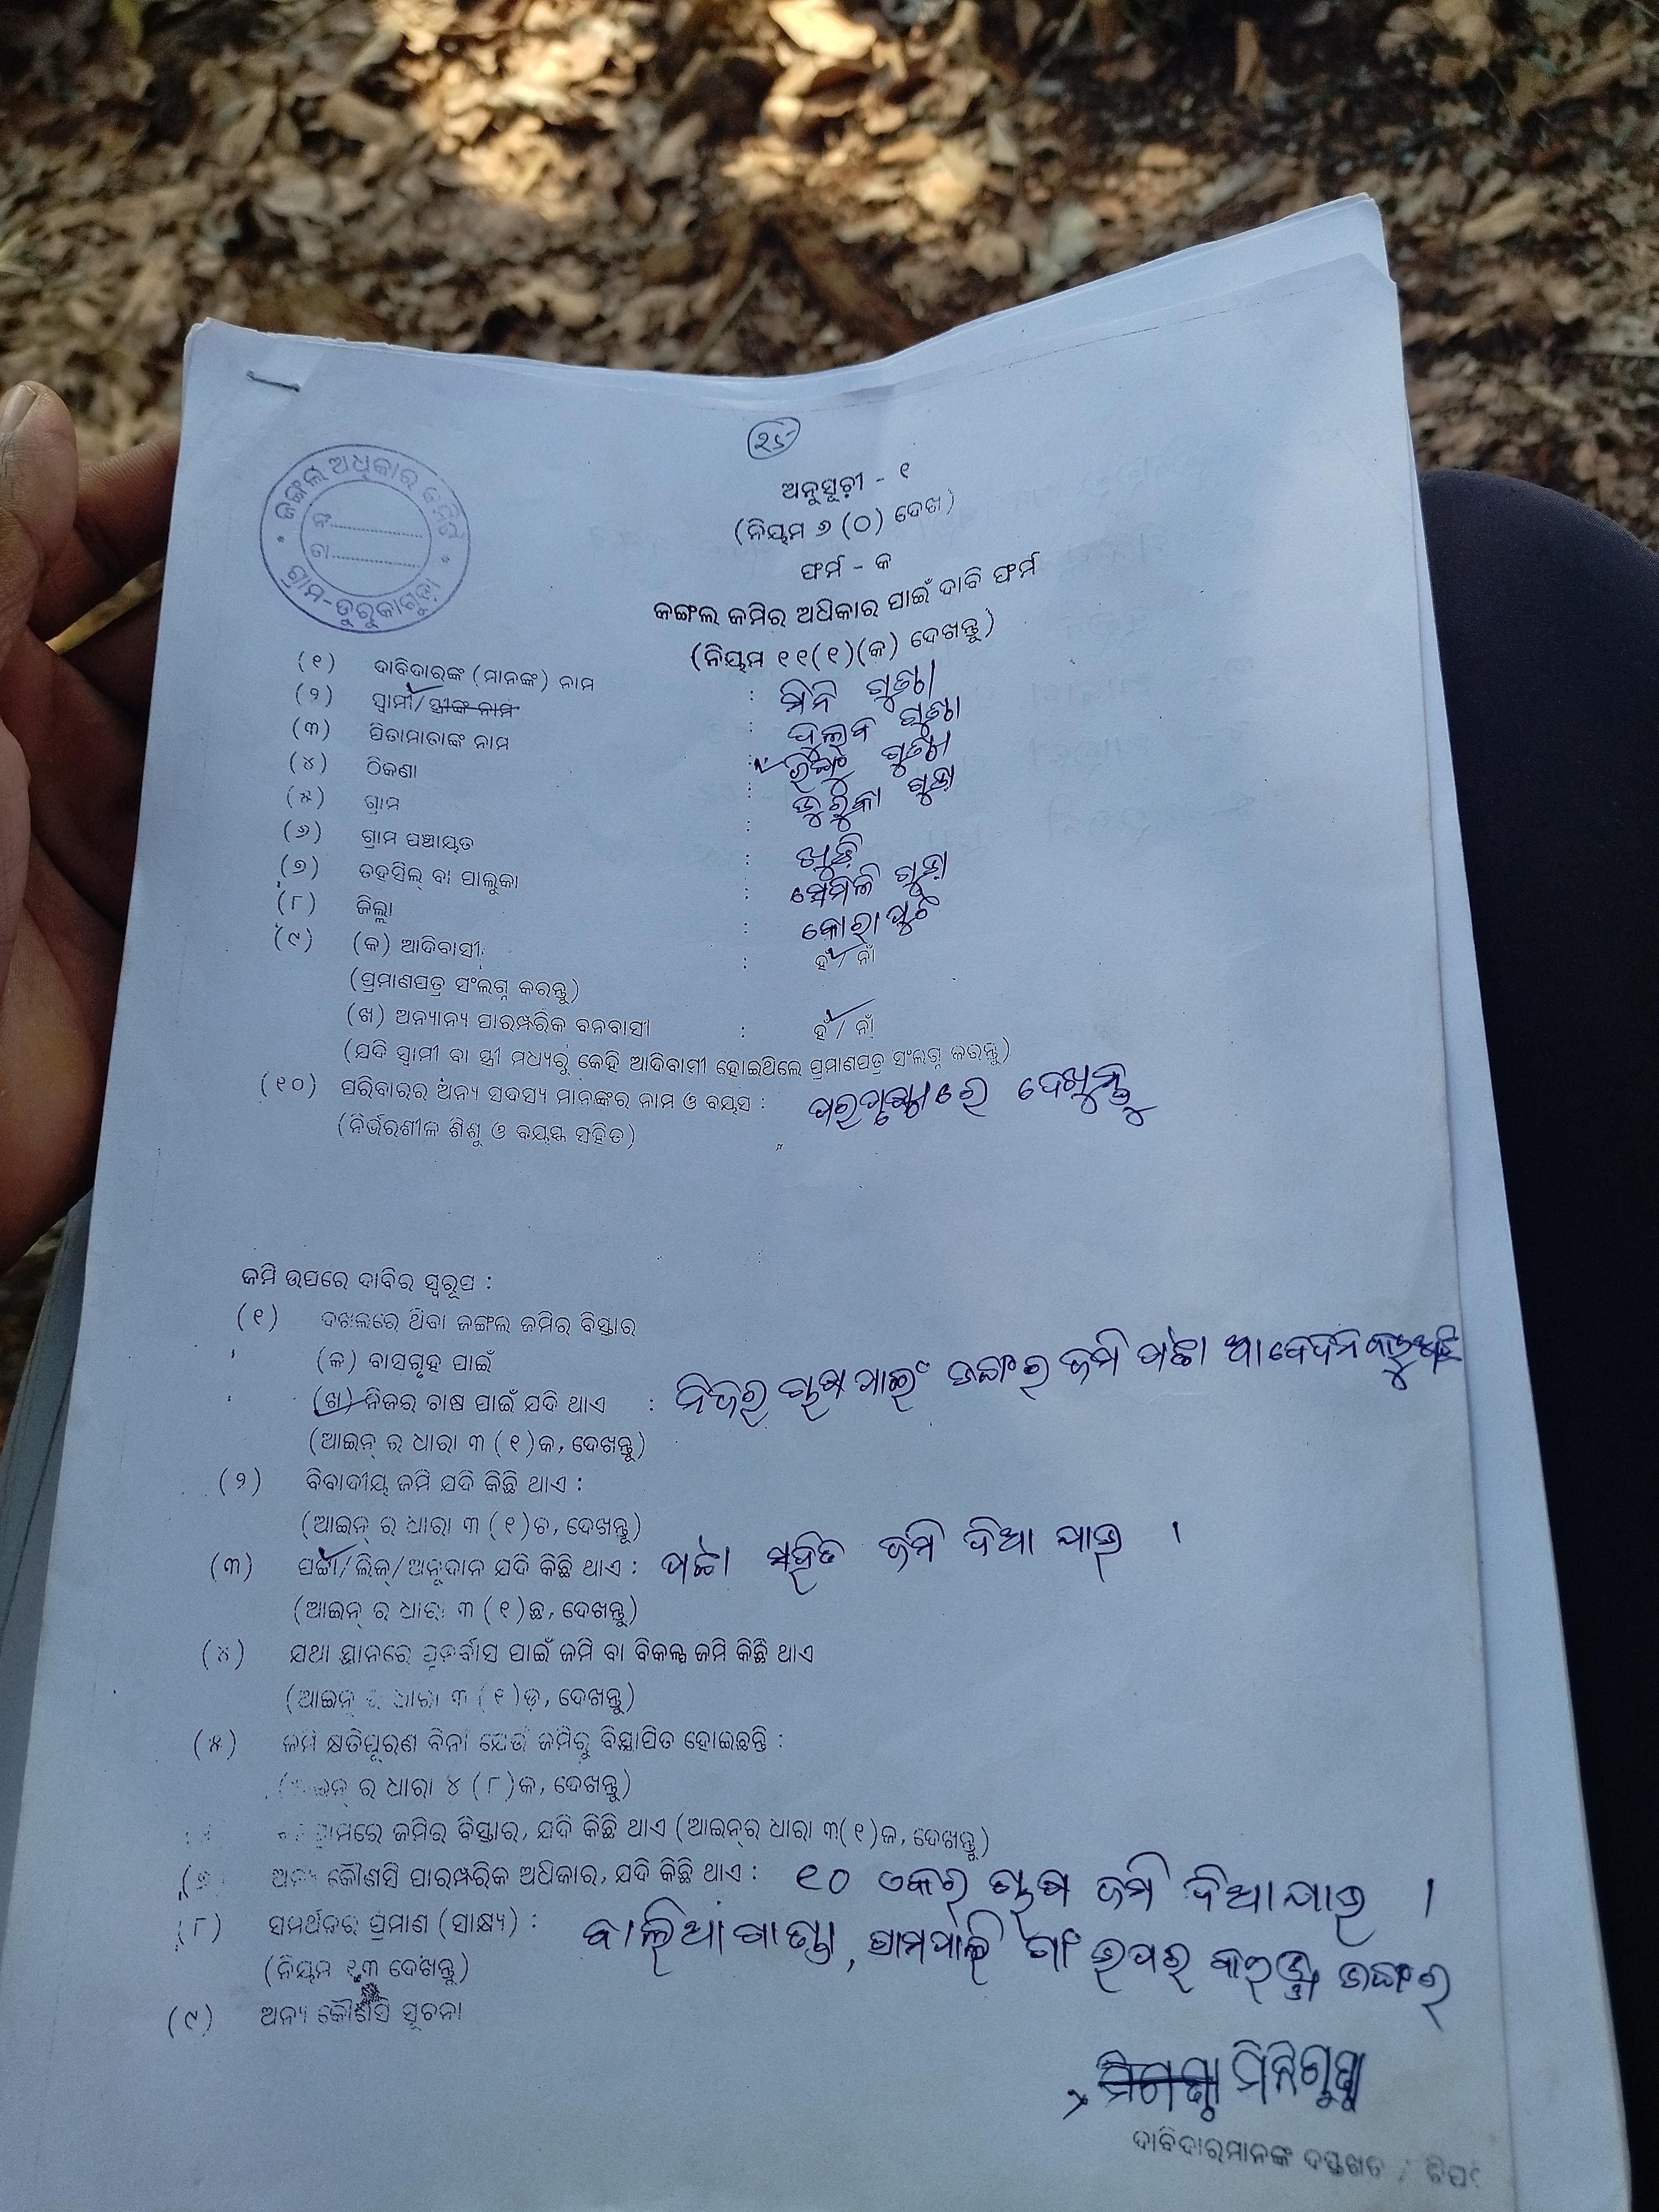 ୨୪
ଜଙ୍ଗଲ ଅଧିକାର କମିଟି
ନଂ
ତା
ଗ୍ରାମ-ଡୁରୁକାଗୁଡ଼ା
ଅନୁସୂଚୀ - ୧
(ନିୟମ ୬ (୦) ଦେଖ)
ଫର୍ମ - କ
ଜଙ୍ଗଲ ଜମିର ଅଧିକାର ପାଇଁ ଦାବି ଫର୍ମ
(ନିୟମ ୧୧(୧)(କ) ଦେଖନ୍ତୁ)
(୧) ଦାବିଦାରଙ୍କ (ମାନଙ୍କ) ନାମ : ମିନି ଗୁଣ୍ଠା
(୨) ସ୍ୱାମୀ/ସ୍ତ୍ରୀଙ୍କ ନାମ :
(୩) ପିତାମାତାଙ୍କ ନାମ :
(୪) ଠିକଣା : ଡୁରୁକା ଗୁଡ଼ା
(୫) ଗ୍ରାମ :
(୬) ଗ୍ରାମ ପଞ୍ଚାୟତ :
(୭) ତହସିଲ୍ ବା ପାଲୁକା : ସେମିଳି ଗୁଡ଼ା
(୮) ଜିଲ୍ଲା : କୋରାପୁଟ
(୯) (କ) ଆଦିବାସୀ : ହଁ / ନାଁ
(ପ୍ରମାଣପତ୍ର ସଂଲଗ୍ନ କରନ୍ତୁ)
(ଖ) ଅନ୍ୟାନ୍ୟ ପାରମ୍ପରିକ ବନବାସୀ : ହଁ / ନାଁ
(ଯଦି ସ୍ୱାମୀ ବା ସ୍ତ୍ରୀ ମଧ୍ୟରୁ କେହି ଆଦିବାସୀ ହୋଇଥିଲେ ପ୍ରମାଣପତ୍ର ସଂଲଗ୍ନ କରନ୍ତୁ)
(୧୦) ପରିବାରର ଅନ୍ୟ ସଦସ୍ୟ ମାନଙ୍କର ନାମ ଓ ବୟସ : ପରପୃଷ୍ଠାରେ ଦେଖୁନ୍ତୁ
(ନିର୍ଭରଶୀଳ ଶିଶୁ ଓ ବୟସ୍କ ସହିତ)
ଜମି ଉପରେ ଦାବିର ସ୍ୱରୂପ :
(୧) ଦଖଲରେ ଥିବା ଜଙ୍ଗଲ ଜମିର ବିସ୍ତାର
(କ) ବାସଗୃହ ପାଇଁ
(ଖ) ନିଜର ଚାଷ ପାଇଁ ଯଦି ଥାଏ : ନିଜର ଚାଷ ପାଇଂ ଡଙ୍ଗର ଜମି ପଟ୍ଟା ଆବେଦନ କରୁଅଛି
(ଆଇନ୍ ର ଧାରା ୩ (୧)କ, ଦେଖନ୍ତୁ)
(୨) ବିବାଦୀୟ ଜମି ଯଦି କିଛି ଥାଏ :
(ଆଇନ୍ ର ଧାରା ୩ (୧)ଚ, ଦେଖନ୍ତୁ)
(୩) ପଟ୍ଟା/ଲିଜ୍/ଅନୁଦାନ ଯଦି କିଛି ଥାଏ : ପଟ୍ଟା ସହିତ ଜମି ଦିଆ ଯାଉ ।
(ଆଇନ୍ ର ଧାରା ୩ (୧)ଛ, ଦେଖନ୍ତୁ)
(୪) ଯଥା ସ୍ଥାନରେ ପୁନର୍ବାସ ପାଇଁ ଜମି ବା ବିକଳ୍ପ ଜମି କିଛି ଥାଏ
(ଆଇନ୍ ର ଧାରା ୩ (୧)ଡ଼, ଦେଖନ୍ତୁ)
(୫) ଜମି କ୍ଷତିପୂରଣ ବିନା ଯେଉଁ ଜମିରୁ ବିସ୍ଥାପିତ ହୋଇଛନ୍ତି :
(ଆଇନ୍ ର ଧାରା ୪ (୮)କ, ଦେଖନ୍ତୁ)
ଗ୍ରାମରେ ଜମିର ବିସ୍ତାର, ଯଦି କିଛି ଥାଏ (ଆଇନ୍‌ର ଧାରା ୩(୧)ଜ, ଦେଖନ୍ତୁ)
(୭) ଅନ୍ୟ କୌଣସି ପାରମ୍ପରିକ ଅଧିକାର, ଯଦି କିଛି ଥାଏ : ୧୦ ଏକର ଚାଷ ଜମି ଦିଆଯାଉ ।
(୮) ସମର୍ଥନର ପ୍ରମାଣ (ସାକ୍ଷ୍ୟ) : ଗାଁ ଉପର ଡଙ୍ଗର
(ନିୟମ ୧୩ ଦେଖନ୍ତୁ)
(୯) ଅନ୍ୟ କୌଣସି ସୂଚନା
ମିନିଗୁଣ୍ଠା
ଦାବିଦାରମାନଙ୍କ ଦସ୍ତଖତ / ଟିପ